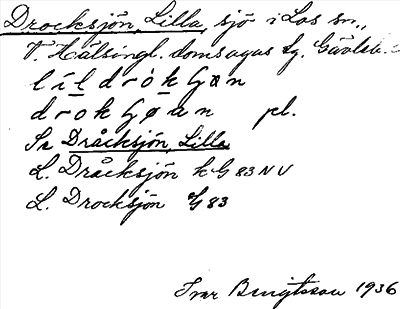 Drocksjön, Lilla, sjö i Los sn.,
V. Hälsingl. domsagas tg. Gävleb.
lìl drók
drok pl.
Se Dråcksjön, Lilla
L. Dråcksjön kG 83 NV
L. Drocksjön G 83
Ivar Bengtsson 1936